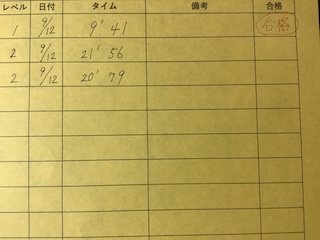 レベル 日付 タイム 備考 合格
1 9/12 9'41 合格
2 9/12 21'56
2 9/12 20'79